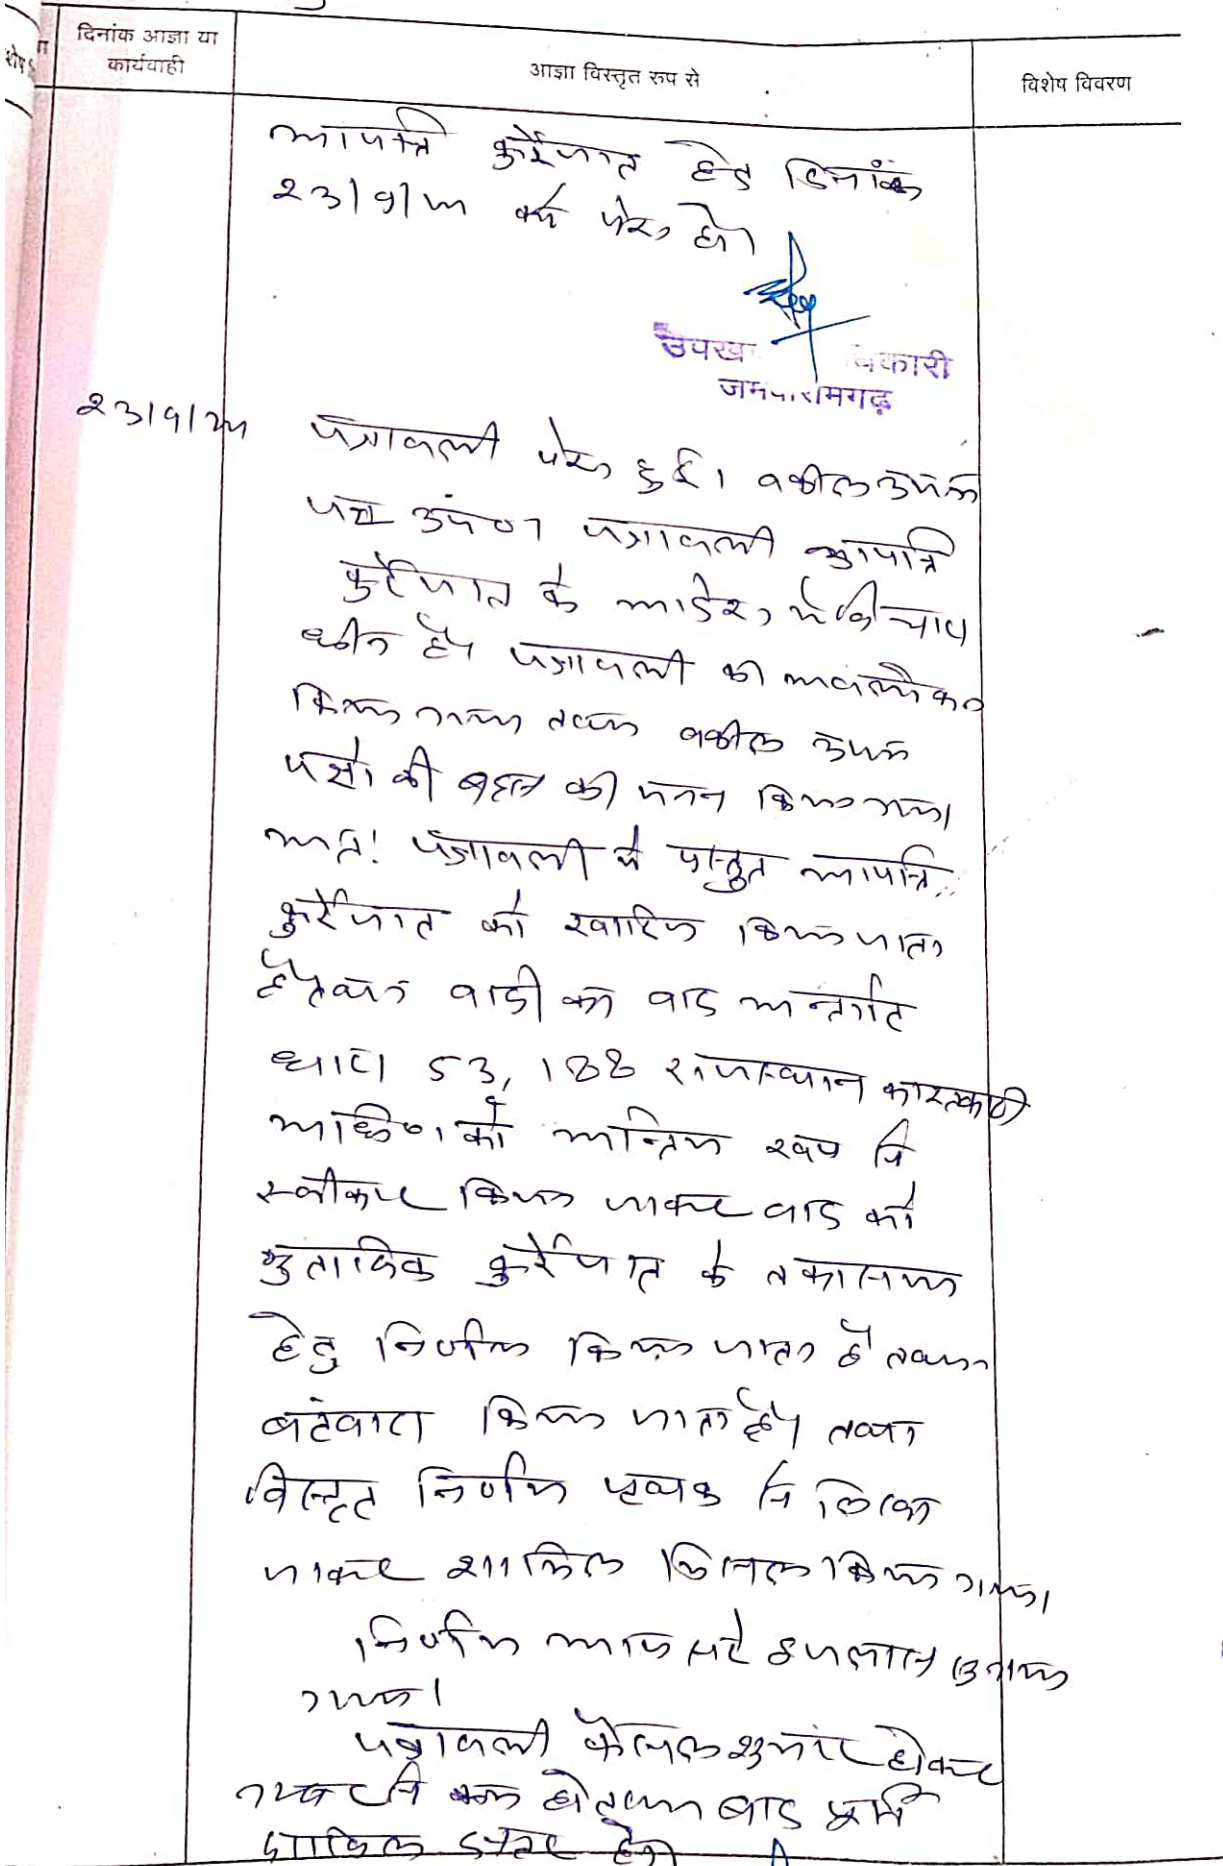 दिनांक आज्ञा या
कार्यवाही
आज्ञा विस्तृत रुप से
विशेष विवरण
आपत्ति कुर्रेजात हेतु दिनांक
को पेश हो।
उपख िकारी
जमवारामगढ़
पत्रावली पेश हुई। वकील उभय
पक्ष उप०। पत्रावली आपत्ति
कुर्रेजात के आदेश में विचारा
धीन है। पत्रावली का अवलोकन
किया गया तथा वकील उभय
पक्षो की बहस की मनन किया गया।
अतः पत्रावली में प्रस्तुत आपत्ति
कुर्रेजात को खारिज किया जाता
है तथा वादी का वाद अन्तर्गत
धारा 53, 188 राजस्थान काश्तकारी
अधि० को अन्तिम रूप से
स्वीकार किया जाकर वाद को
मुताबिक कुर्रेजात के तकासमा
हेतु निर्णीत किया जाता है तथा
बंटवारा किया जाता है। तथा
विस्तृत निर्णय पृथक से लिखा
जाकर शामिल मिसल किया गया।
निर्णय आज सरे इजलास सुनाया
गया।
पत्रावली फैसल शुमार होकर
नम्बर से कम हो तथा बाद पूर्ति
दाखिल दफ्तर हो।